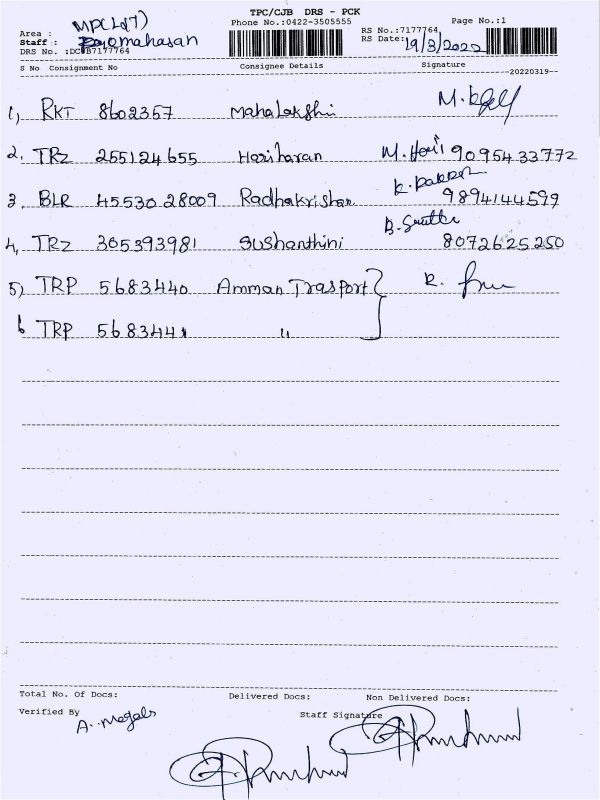 TPC/CJB DRS - PCK
Area : MPCL(17) Phone No.:0422-3505555 Page No.:1
Staff : RS No.:7177764
DRS No. :DCJB7177764 RS Date: 19/3/2022
S No Consignment No Consignee Details Signature
20220319
1, RKT 8602357 Mahalakshmi
2. TRZ 255124655 Hariharan M. Hari 9095433772
3. BLR 4553028009 Radhakrishan 9894144599
4, TRZ 305393981 Sushanthini 8072625250
5) TRP 5683440 Amman Trasport R.
6 TRP 5683441 "
Total No. Of Docs: Delivered Docs: Non Delivered Docs:
Verified By Staff Signature